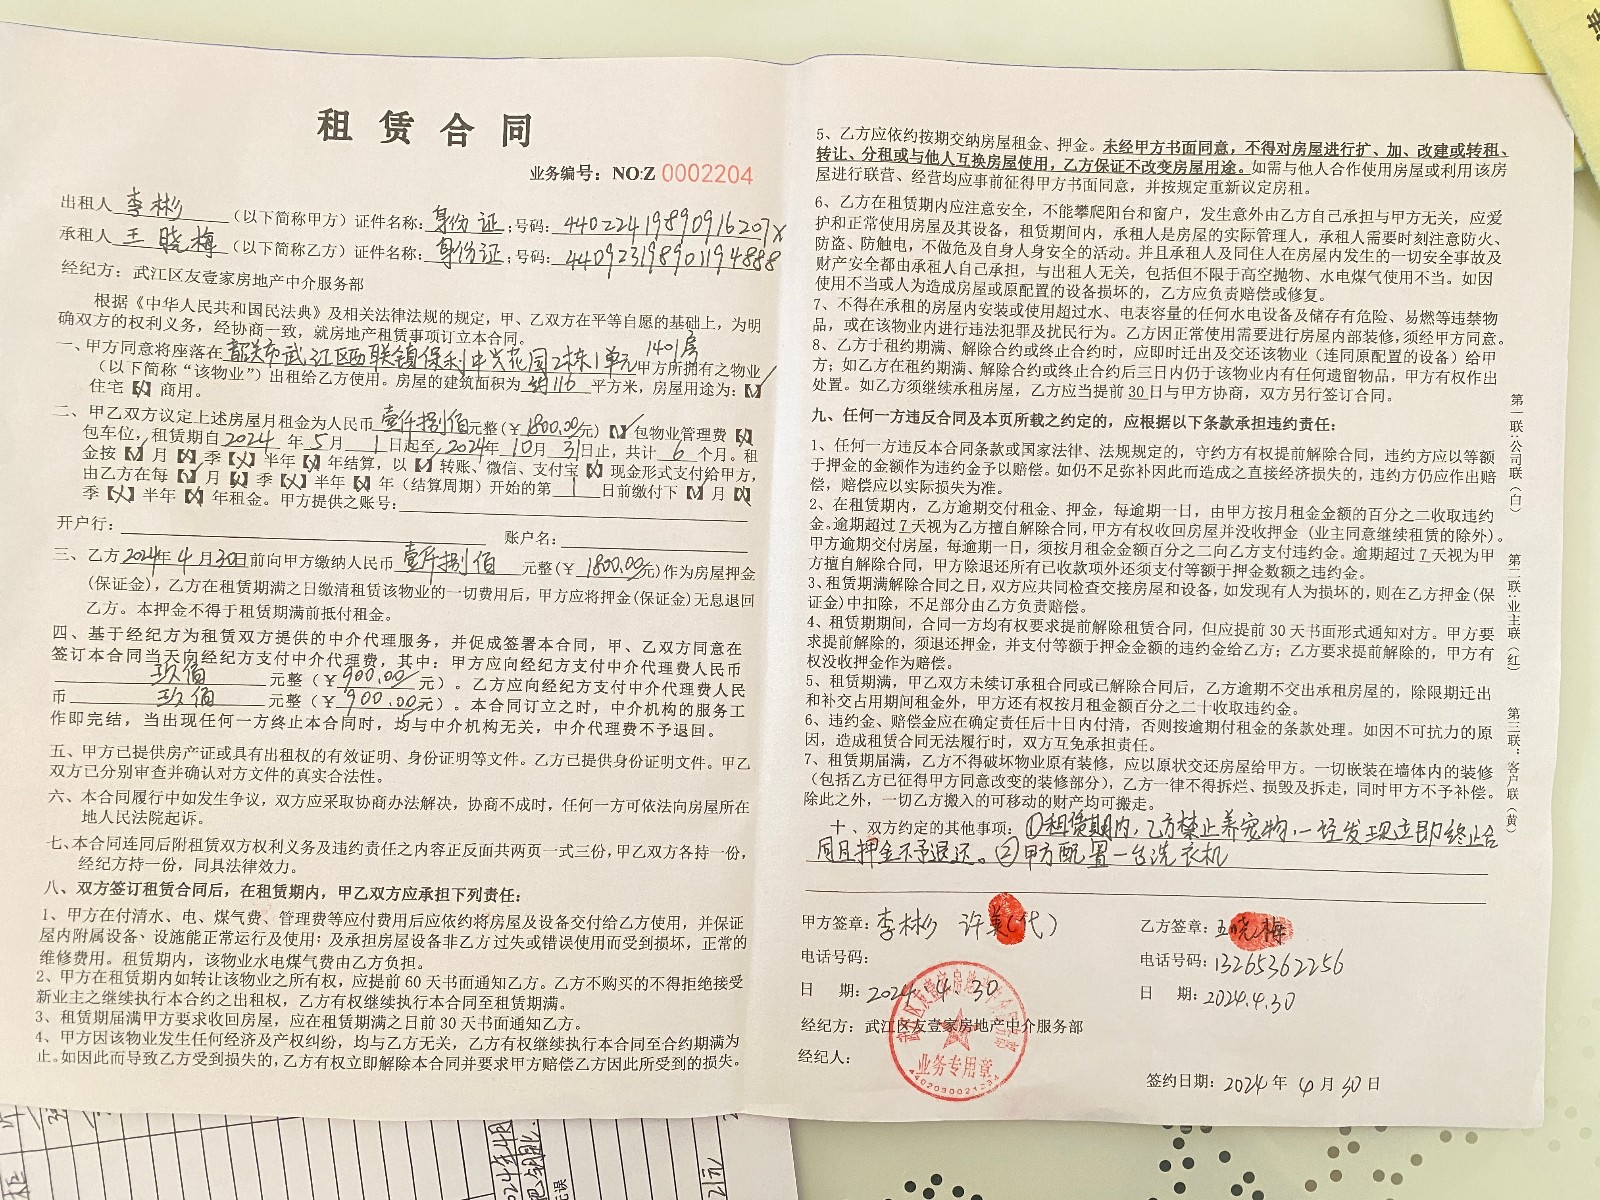 租赁合同
业务编号：NO:Z 0002204
出租人 李彬 （以下简称甲方）证件名称：身份证；号码：44022419890916207X
承租人 王晓梅 （以下简称乙方）证件名称：身份证；号码：440923198901194888
经纪方：武江区友壹家房地产中介服务部
根据《中华人民共和国民法典》及相关法律法规的规定，甲、乙双方在平等自愿的基础上，为明
确双方的权利义务，经协商一致，就房地产租赁事项订立本合同。
一、甲方同意将座落在 韶关市武江区西联镇保利中央花园2栋1单元1401房 甲方所拥有之物业
（以下简称“该物业”）出租给乙方使用。房屋的建筑面积为 116 平方米，房屋用途为：【✓】
住宅【X】商用。
二、甲乙双方议定上述房屋月租金为人民币 壹仟捌佰 元整（¥ 1800.00 元）【✓】包物业管理费【X】
包车位，租赁期自 2024 年 5 月 1 日起至 2024 年 10 月 31 日止，共计 6 个月。租
金按【✓】月【X】季【X】半年【X】年结算，以【✓】转账、微信、支付宝【X】现金形式支付给甲方，
由乙方在每【✓】月【X】季【X】半年【X】年（结算周期）开始的第 1 日前缴付下【✓】月【X】
季【X】半年【X】年租金。甲方提供之账号：
开户行： 账户名：
三、乙方 2024年 4 月 30 日前向甲方缴纳人民币 壹仟捌佰 元整（¥ 1800.00 元）作为房屋押金
(保证金)，乙方在租赁期满之日缴清租赁该物业的一切费用后，甲方应将押金(保证金)无息退回
乙方。本押金不得于租赁期满前抵付租金。
四、基于经纪方为租赁双方提供的中介代理服务，并促成签署本合同，甲、乙双方同意在
签订本合同当天向经纪方支付中介代理费，其中：甲方应向经纪方支付中介代理费人民币
玖佰 元整（¥ 900.00 元）。乙方应向经纪方支付中介代理费人民
币 玖佰 元整（¥ 900.00 元）。本合同订立之时，中介机构的服务工
作即完结，当出现任何一方终止本合同时，均与中介机构无关，中介代理费不予退回。
五、甲方已提供房产证或具有出租权的有效证明、身份证明等文件。乙方已提供身份证明文件。甲乙
双方已分别审查并确认对方文件的真实合法性。
六、本合同履行中如发生争议，双方应采取协商办法解决，协商不成时，任何一方可依法向房屋所在
地人民法院起诉。
七、本合同连同后附租赁双方权利义务及违约责任之内容正反面共两页一式三份，甲乙双方各持一份，
经纪方持一份，同具法律效力。
八、双方签订租赁合同后，在租赁期内，甲乙双方应承担下列责任：
1、甲方在付清水、电、煤气费、管理费等应付费用后应依约将房屋及设备交付给乙方使用，并保证
屋内附属设备、设施能正常运行及使用；及承担房屋设备非乙方过失或错误使用而受到损坏，正常的
维修费用。租赁期内，该物业水电煤气费由乙方负担。
2、甲方在租赁期内如转让该物业之所有权，应提前 60 天书面通知乙方。乙方不购买的不得拒绝接受
新业主之继续执行本合约之出租权，乙方有权继续执行本合同至租赁期满。
3、租赁期届满甲方要求收回房屋，应在租赁期满之日前 30 天书面通知乙方。
4、甲方因该物业发生任何经济及产权纠纷，均与乙方无关，乙方有权继续执行本合同至合约期满为
止。如因此而导致乙方受到损失的，乙方有权立即解除本合同并要求甲方赔偿乙方因此所受到的损失。
5、乙方应依约按期交纳房屋租金、押金。未经甲方书面同意，不得对房屋进行扩、加、改建或转租、
转让、分租或与他人互换房屋使用，乙方保证不改变房屋用途。如需与他人合作使用房屋或利用该房
屋进行联营、经营均应事前征得甲方书面同意，并按规定重新议定房租。
6、乙方在租赁期内应注意安全，不能攀爬阳台和窗户，发生意外由乙方自己承担与甲方无关，应爱
护和正常使用房屋及其设备，租赁期间内，承租人是房屋的实际管理人，承租人需要时刻注意防火、
防盗、防触电，不做危及自身人身安全的活动。并且承租人及同住人在房屋内发生的一切安全事故及
财产安全都由承租人自己承担，与出租人无关，包括但不限于高空抛物、水电煤气使用不当。如因
使用不当或人为造成房屋或原配置的设备损坏的，乙方应负责赔偿或修复。
7、不得在承租的房屋内安装或使用超过水、电表容量的任何水电设备及储存有危险、易燃等违禁物
品，或在该物业内进行违法犯罪及扰民行为。乙方因正常使用需要进行房屋内部装修，须经甲方同意。
8、乙方于租约期满、解除合约或终止合约时，应即时迁出及交还该物业（连同原配置的设备）给甲
方；如乙方在租约期满、解除合约或终止合约后三日内仍于该物业内有任何遗留物品，甲方有权作出
处置。如乙方须继续承租房屋，乙方应当提前 30 日与甲方协商，双方另行签订合同。
九、任何一方违反合同及本页所载之约定的，应根据以下条款承担违约责任：
1、任何一方违反本合同条款或国家法律、法规规定的，守约方有权提前解除合同，违约方应以等额
于押金的金额作为违约金予以赔偿。如仍不足弥补因此而造成之直接经济损失的，违约方仍应作出赔
偿，赔偿应以实际损失为准。
2、在租赁期内，乙方逾期交付租金、押金，每逾期一日，由甲方按月租金金额的百分之二收取违约
金。逾期超过 7 天视为乙方擅自解除合同，甲方有权收回房屋并没收押金（业主同意继续租赁的除外）。
甲方逾期交付房屋，每逾期一日，须按月租金金额百分之二向乙方支付违约金。逾期超过 7 天视为甲
方擅自解除合同，甲方除退还所有已收款项外还须支付等额于押金数额之违约金。
3、租赁期满解除合同之日，双方应共同检查交接房屋和设备，如发现有人为损坏的，则在乙方押金(保
证金)中扣除，不足部分由乙方负责赔偿。
4、租赁期期间，合同一方均有权要求提前解除租赁合同，但应提前 30 天书面形式通知对方。甲方要
求提前解除的，须退还押金，并支付等额于押金金额的违约金给乙方；乙方要求提前解除的，甲方有
权没收押金作为赔偿。
5、租赁期满，甲乙双方未续订承租合同或已解除合同后，乙方逾期不交出承租房屋的，除限期迁出
和补交占用期间租金外，甲方还有权按月租金额百分之二十收取违约金。
6、违约金、赔偿金应在确定责任后十日内付清，否则按逾期付租金的条款处理。如因不可抗力的原
因，造成租赁合同无法履行时，双方互免承担责任。
7、租赁期届满，乙方不得破坏物业原有装修，应以原状交还房屋给甲方。一切嵌装在墙体内的装修
（包括乙方已征得甲方同意改变的装修部分），乙方一律不得拆烂、损毁及拆走，同时甲方不予补偿。
除此之外，一切乙方搬入的可移动的财产均可搬走。
十、双方约定的其他事项：①租赁期内，乙方禁止养宠物，一经发现立即终止合
同且押金不予退还。②甲方配置一台洗衣机
甲方签章：李彬 许美(代)
电话号码：
日 期：2024.4.30
经纪方：武江区友壹家房地产中介服务部
经纪人：
乙方签章：王晓梅
电话号码：13265362256
日 期：2024.4.30
签约日期：2024 年 4 月 30 日
业务专用章
第一联：公司联（白）
第二联：业主联（红）
第三联：客户联（黄）